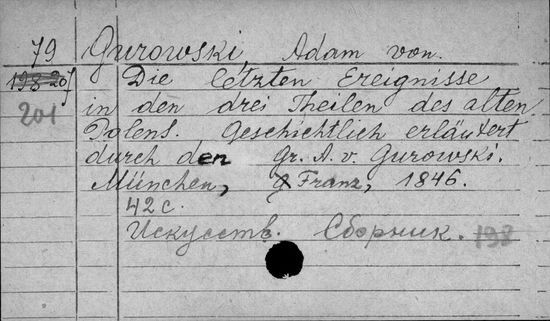 79 Gurowski, Adam von.
Die letzten Ereignisse
201 in den drei Theilen des alten
Polens. Geschichtlich erläutert
durch den Gr. A. v. Gurowski.
München, Franz, 1846.
42 с.
Искусств. Сборник. 198